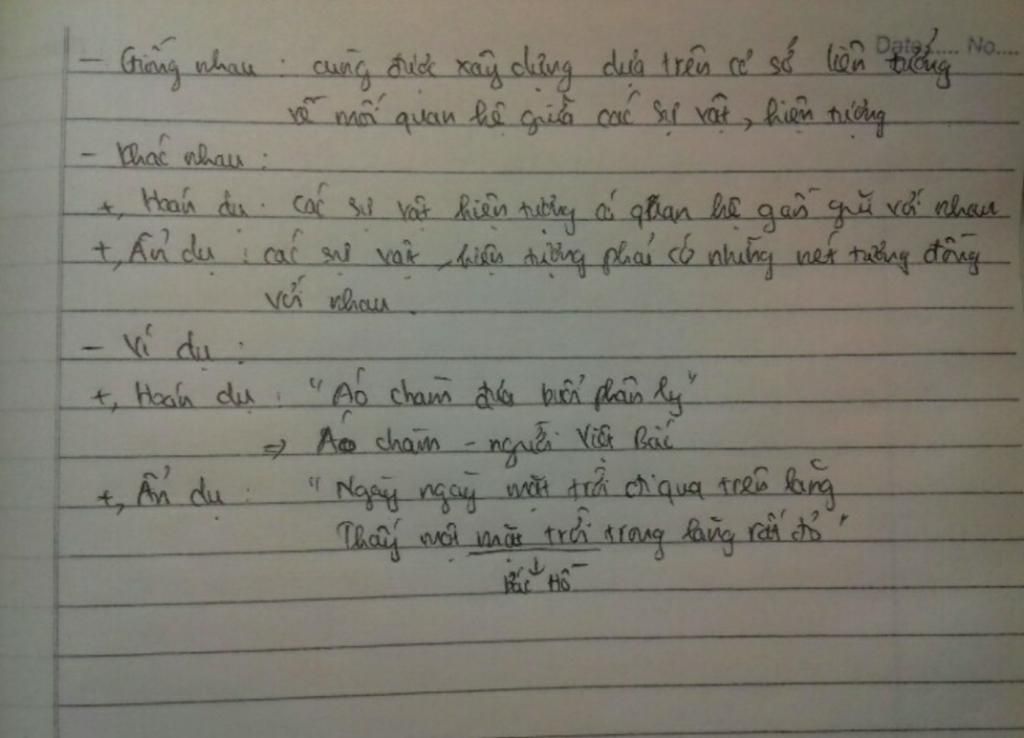 Date ..... No....
- Giống nhau : cùng được xây dựng dựa trên cơ sở liên tưởng
về mối quan hệ giữa các sự vật, hiện tượng
- Khác nhau :
+, Hoán dụ : các sự vật hiện tượng có quan hệ gần gũi với nhau
+, Ẩn dụ : các sự vật, hiện tượng phải có những nét tương đồng
với nhau.
- Ví dụ :
+, Hoán dụ : "Áo chàm đưa buổi phân ly"
⇒ Áo chàm - người Việt Bắc
+, Ẩn dụ : "Ngày ngày mặt trời đi qua trên lăng
Thấy một mặt trời trong lăng rất đỏ"
↓
Bác Hồ